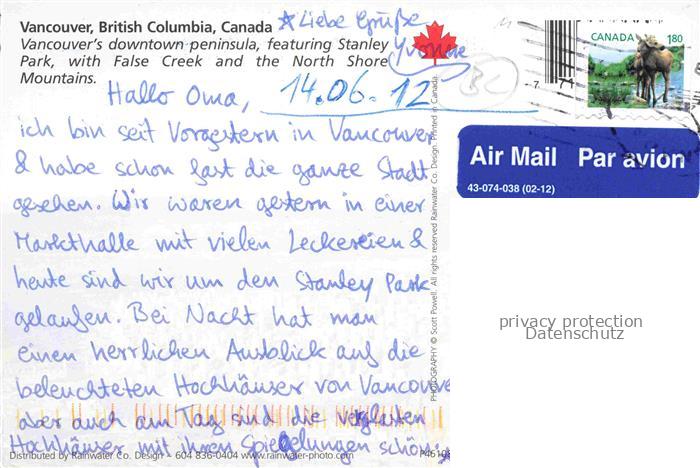 Vancouver, British Columbia, Canada
Vancouver's downtown peninsula, featuring Stanley
Park, with False Creek and the North Shore
Mountains.
* Liebe Grüße
Yvonne
BC
CANADA 180
7 71
Air Mail Par avion
43-074-038 (02-12)
14.06.12
Hallo Oma,
ich bin seit Vorgestern in Vancouver
& habe schon fast die ganze Stadt
gesehen. Wir waren gestern in einer
Markthalle mit vielen Leckereien &
heute sind wir um den Stanley Park
gelaufen. Bei Nacht hat man
einen herrlichen Ausblick auf die
beleuchteten Hochhäuser von Vancouve
aber auch am Tag sind die verglasten
Hochhäuser mit ihren Spiegelungen schön.*
PHOTOGRAPHY © Scott Powell All rights reserved Rainwater Co. Design Printed in Canada
privacy protection
Datenschutz
Distributed by Rainwater Co. Design • 604 836-0404 www.rainwater-photo.com